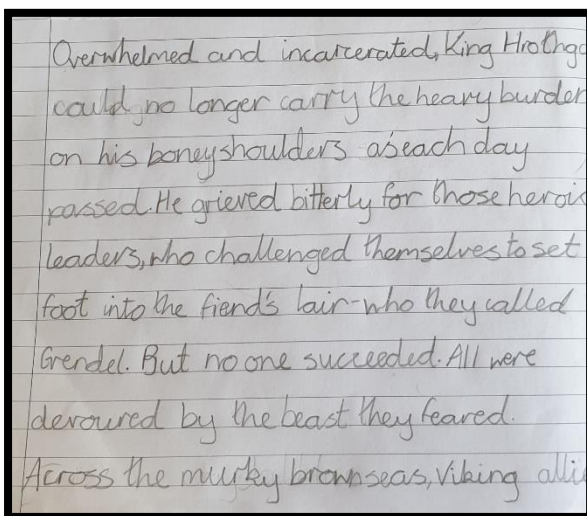 Overwhelmed and incarcerated, King Hrothga
could no longer carry the heavy burden
on his boney shoulders as each day
passed. He grieved bitterly for those heroic
leaders, who challenged themselves to set
foot into the fiend's lair-who they called
Grendel. But no one succeeded. All were
devoured by the beast they feared.
Across the murky brown seas, Viking allie